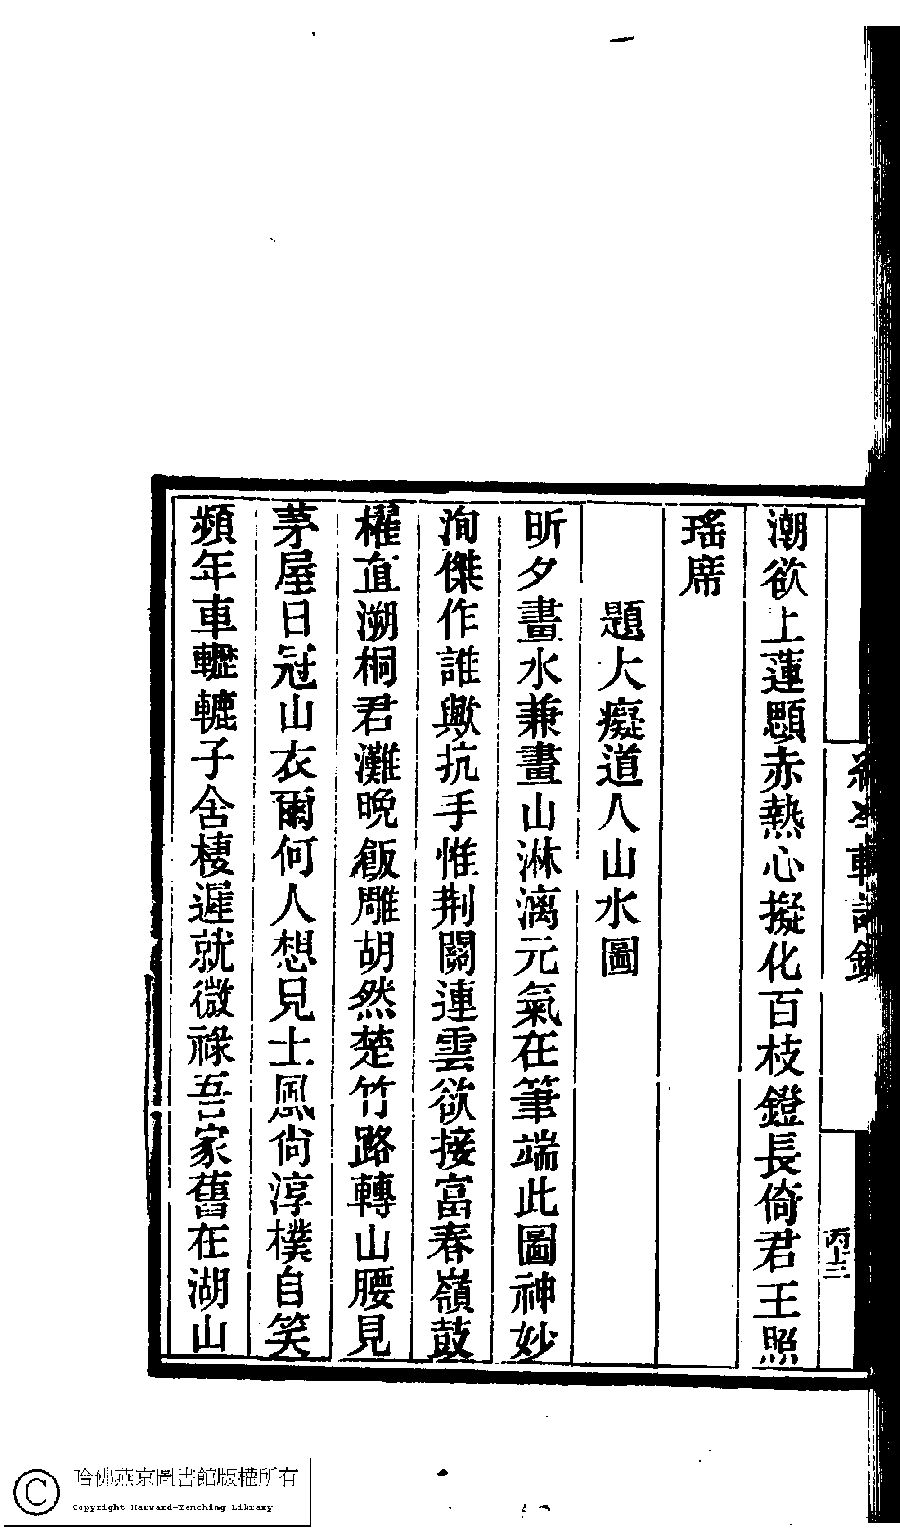 潮欲上蓮顋赤熱心擬化百枝鐙長倚君王照
瑤席
題大癡道人山水圖
昕夕畫水兼畫山淋漓元氣在筆端此圖神妙
洵傑作誰歟抗手惟荆關連雲欲接富春嶺鼓
櫂直溯桐君灘晚飯雕胡然楚竹路轉山腰見
茅屋日冠山衣爾何人想見士風尙淳樸自笑
頻年車轣轆子舍棲遲就微祿吾家舊在湖山
軒詩鈔
丙十三
哈佛燕京圖書館版權所有
Copyright Harvard-Yenching Library